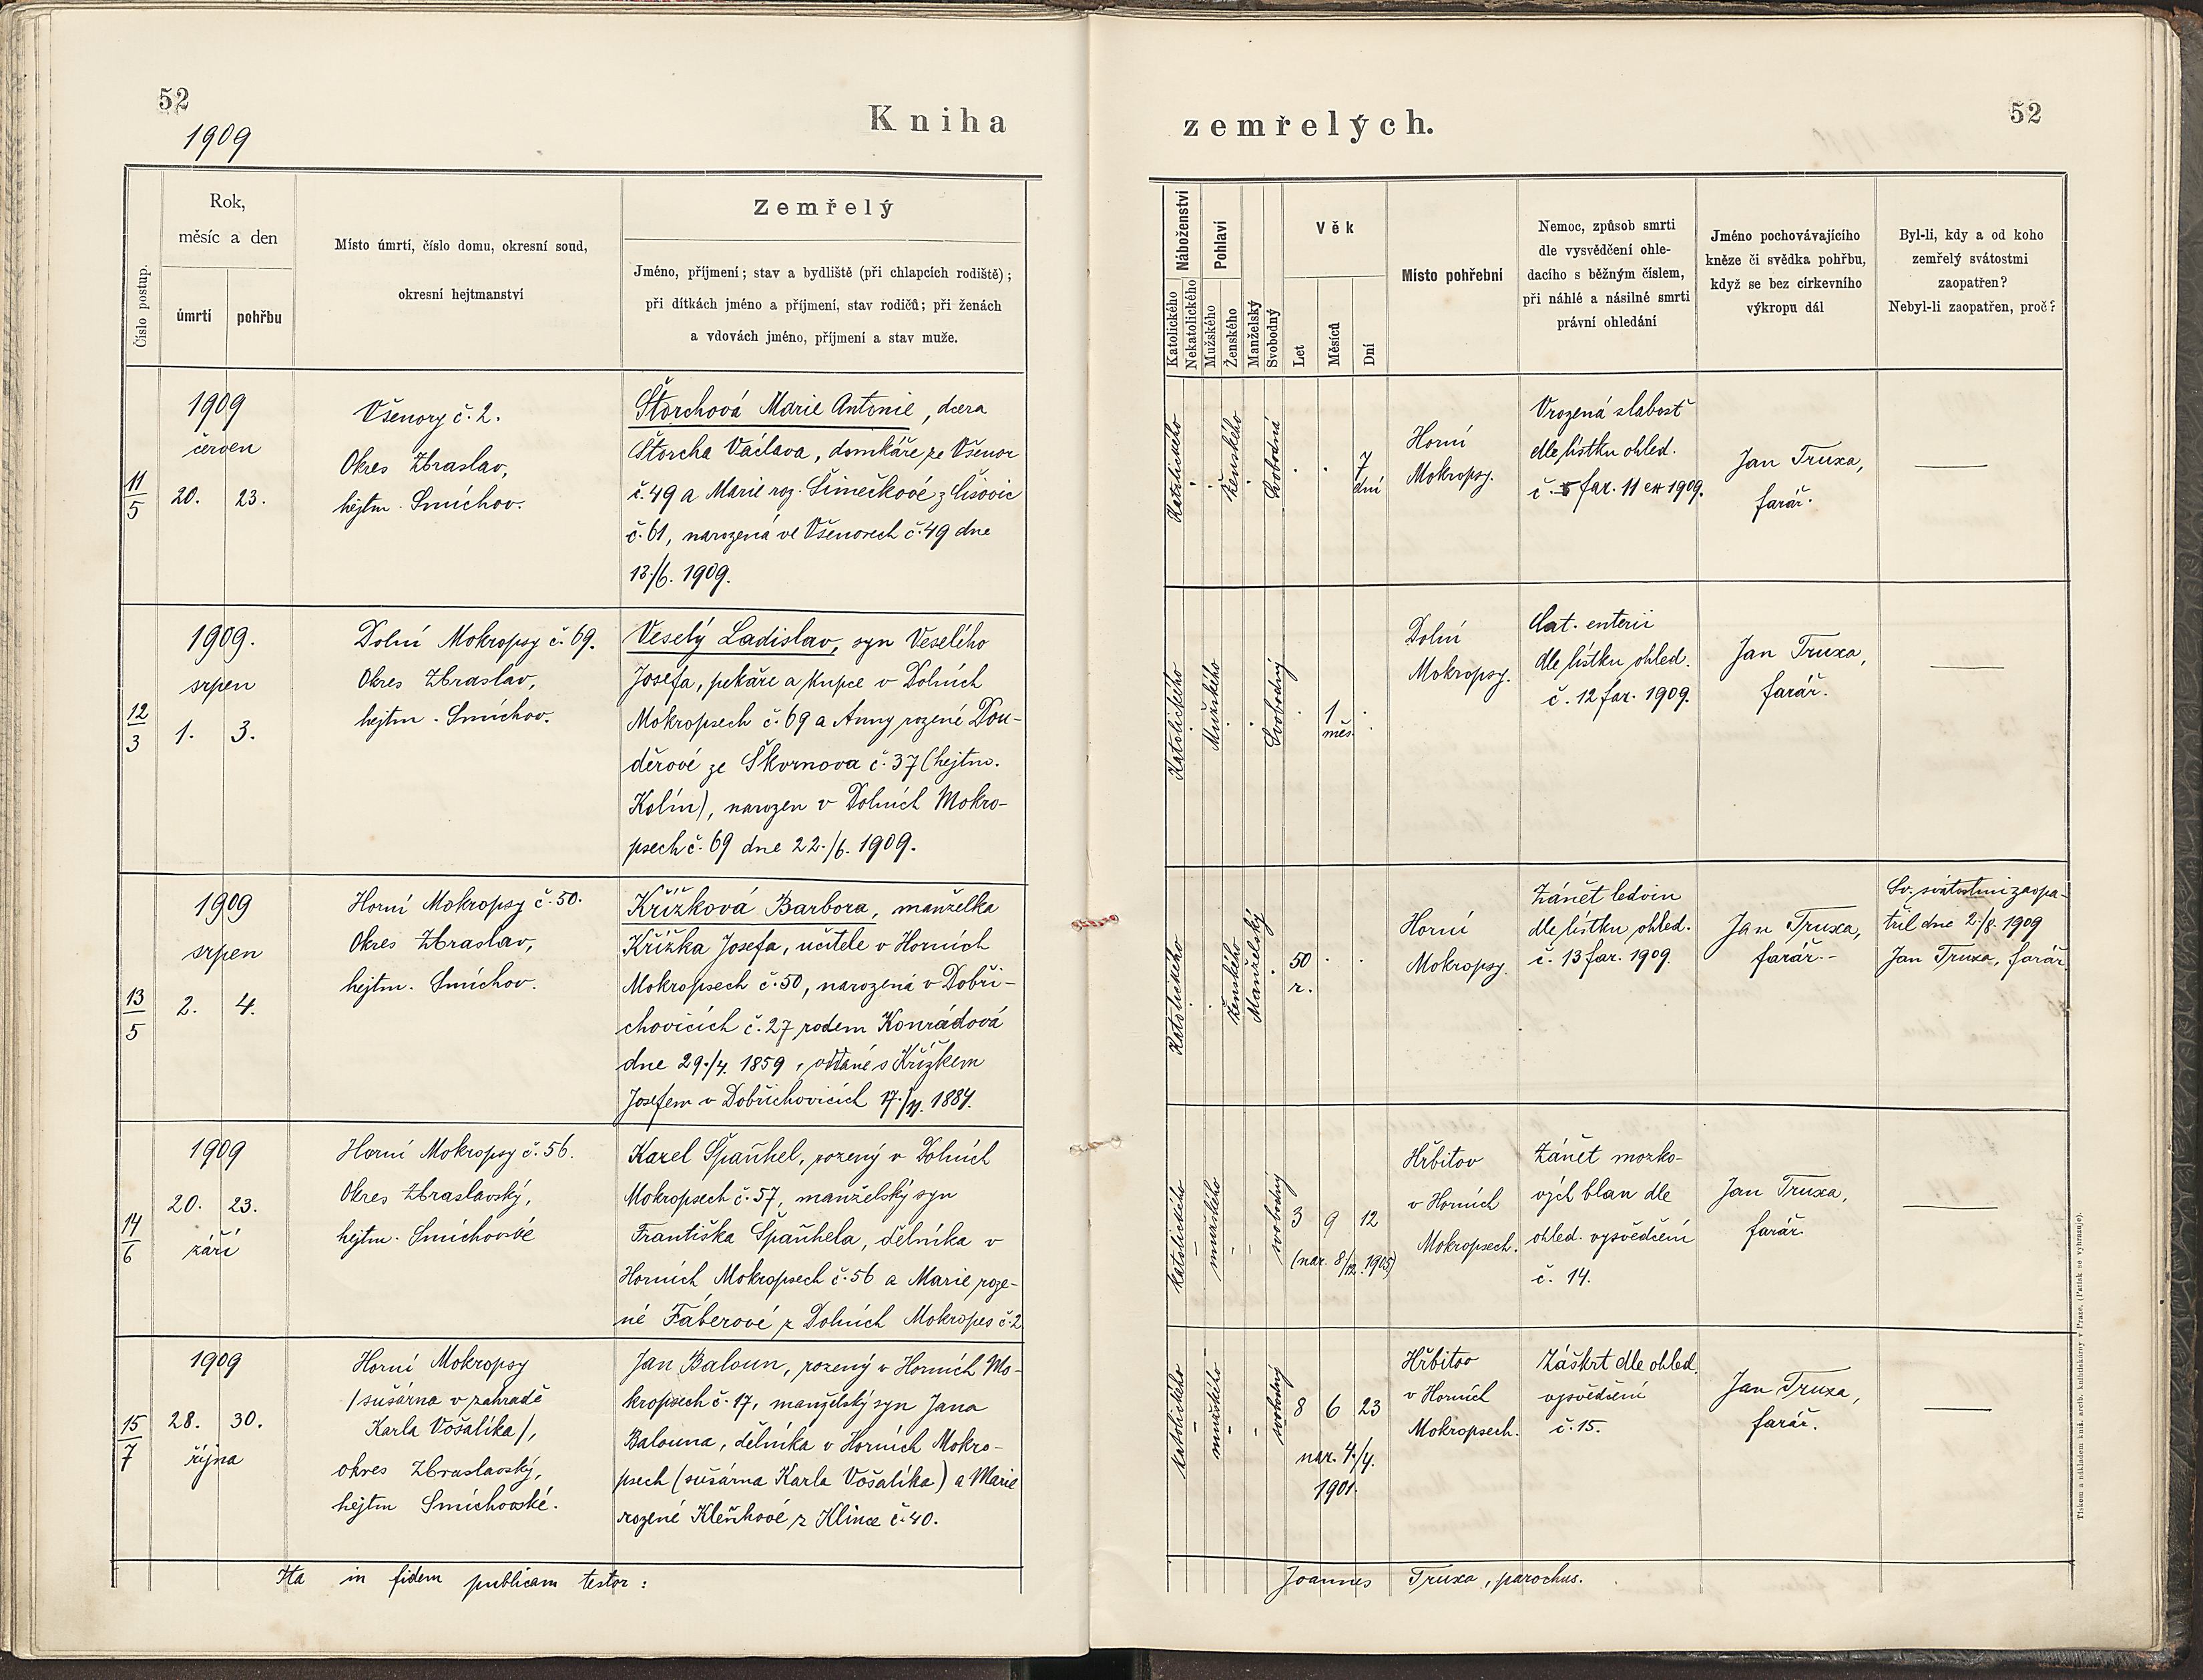 52
1909
Kniha
Číslo postup.
Rok,
měsíc a den
úmrtí
pohřbu
Místo úmrtí, číslo domu, okresní soud,
okresní hejtmanství
Zemřelý
Jméno, příjmení; stav a bydliště (při chlapcích rodiště);
při dítkách jméno a příjmení, stav rodičů; při ženách
a vdovách jméno, příjmení a stav muže.
11/5
1909
červen
20. 23.
Všenory č. 2.
Okres Zbraslav,
hejtm. Smíchov.
Štorchová Marie Antonie, dcera
Štorcha Václava, domkáře ze Všenor
č. 49 a Marie roz. Šimečkové z Lišovic
č. 61, narozená ve Všenorech č. 49 dne
13./6. 1909.
12/3
1909.
srpen
1. 3.
Dolní Mokropsy č. 69.
Okres Zbraslav,
hejtm. Smíchov.
Veselý Ladislav, syn Veselého
Josefa, pekaře a kupce v Dolních
Mokropsech č. 69 a Anny rozené Dou-
děrové ze Škvrnova č. 37 (hejtm.
Kolín), narozen v Dolních Mokro-
psech č. 69 dne 22./6. 1909.
13/5
1909
srpen
2. 4.
Horní Mokropsy č. 50.
Okres Zbraslav,
hejtm. Smíchov.
Křížková Barbora, manželka
Křížka Josefa, učitele v Horních
Mokropsech č. 50, narozená v Dobři-
chovicích č. 27 rodem Konrádová
dne 29./4. 1859, oddané s Křížkem
Josefem v Dobřichovicích 17./11. 1884.
14/6
1909
20. 23.
září
Horní Mokropsy č. 56.
Okres Zbraslavský,
hejtm. Smíchovské
Karel Španhel, rozený v Dolních
Mokropsech č. 57, manželský syn
Františka Španhela, dělníka v
Horních Mokropsech č. 56 a Marie roze-
né Fáberové z Dolních Mokropes č. 2
15/7
1909
28. 30.
října
Horní Mokropsy
/sušárna v zahradě
Karla Vošalíka/,
okres Zbraslavský,
hejtm Smíchovské.
Jan Baloun, rozený v Horních Mo-
kropsech č. 17, manželský syn Jana
Balouna, dělníka v Horních Mokro-
psech (sušárna Karla Vošalíka) a Marie
rozené Kleňhové z Klince č. 40.
Ita in fidem publicam testor:
52
zemřelých.
Náboženství
Katolického
Nekatolického
Pohlaví
Mužského
Ženského
Manželský
Svobodný
Věk
Let
Měsíců
Dní
Místo pohřební
Nemoc, způsob smrti
dle vysvědčení ohle-
dacího s běžným číslem,
při náhlé a násilné smrti
právní ohledání
Jméno pochovávajícího
kněze či svědka pohřbu,
když se bez církevního
výkropu dál
Byl-li, kdy a od koho
zemřelý svátostmi
zaopatřen?
Nebyl-li zaopatřen, proč?
Katolického
ženského
svobodná
7
dní
Horní
Mokropsy.
Vrozená slabosť
dle lístku ohled.
č. 5 far. 11 ex 1909.
Jan Truxa,
farář.
Katolického
Mužského
Svobodný
1
měs.
Dolní
Mokropsy.
Cat. enterii
dle lístku ohled.
č. 12 far. 1909.
Jan Truxa,
farář.
Katolického
Ženského
Manželský
50
r.
Horní
Mokropsy.
Zánět ledvin
dle lístku ohled.
č. 13 far. 1909.
Jan Truxa,
farář.-
Sv. svátostmi zaopa-
třil dne 2./8. 1909
Jan Truxa, farář.
katolického
mužského
svobodný
3 9 12
(nar. 8/12. 1905)
Hřbitov
v Horních
Mokropsech.
Zánět mozko-
vých blan dle
ohled. vysvědčení
č. 14.
Jan Truxa,
farář.
katolického
mužského
svobodný
8 6 23
nar. 4./4.
1901.
Hřbitov
v Horních
Mokropsech.
Záškrt dle ohled.
vysvědčení
č. 15.
Jan Truxa,
farář.
Joannes Truxa, parochus.
Tiskem a nákladem knih. arcib. knihtiskárny v Praze. (Patisk se vyhrazuje).